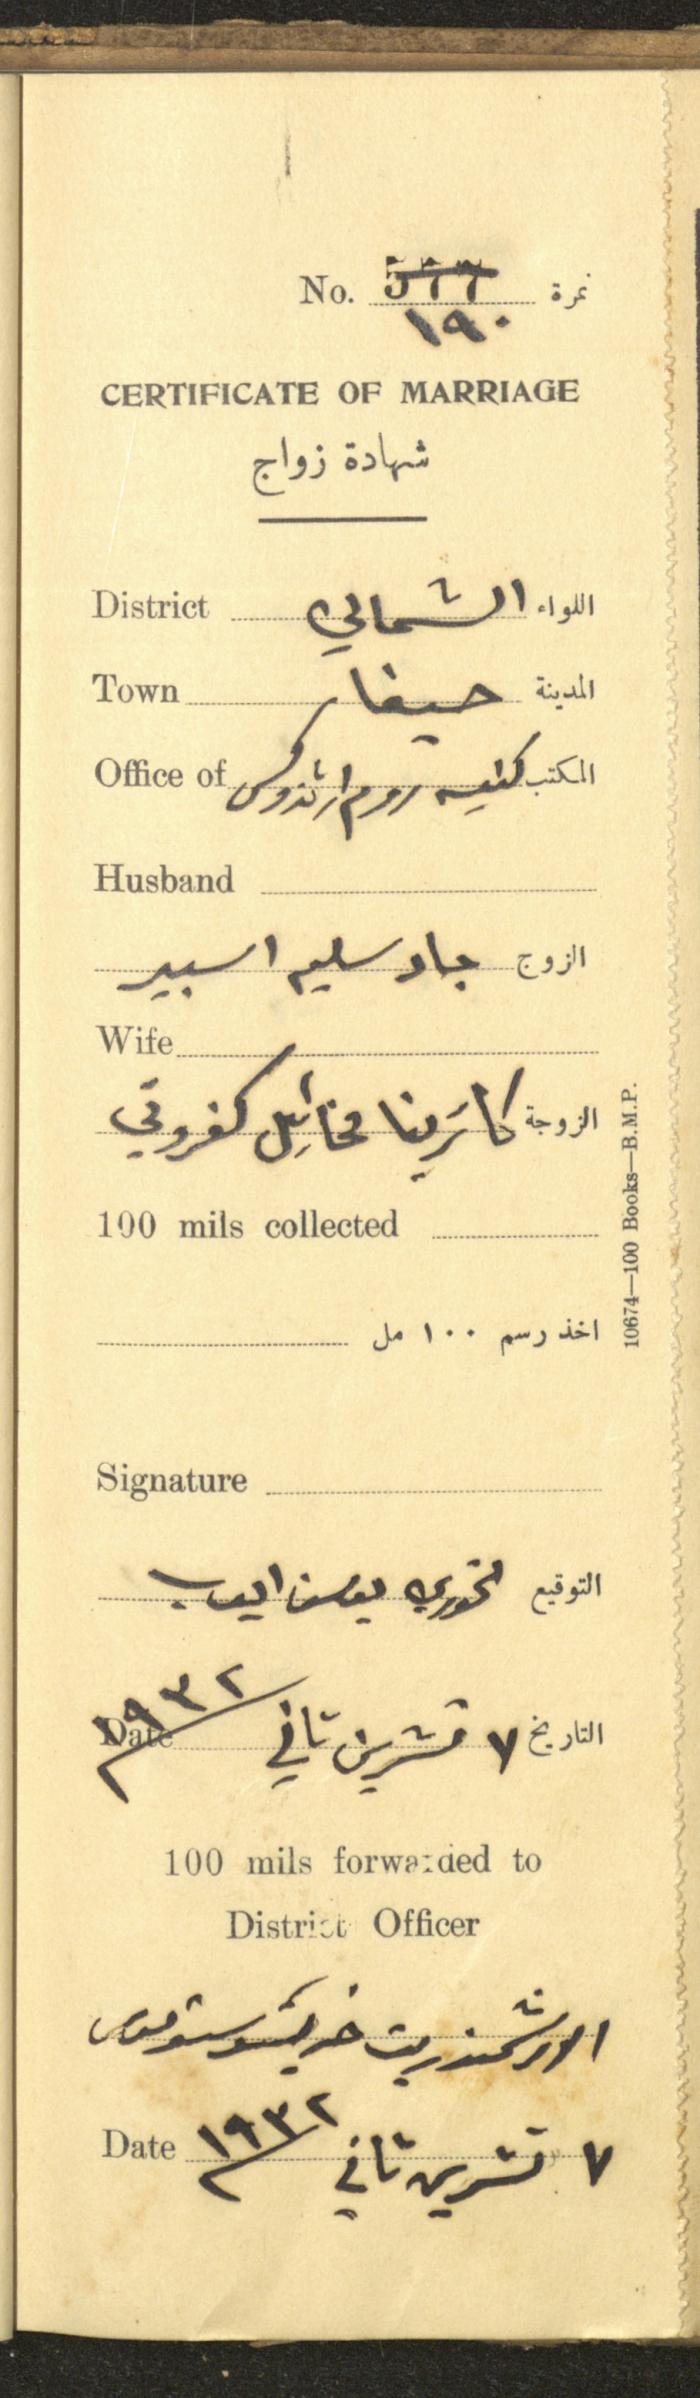 No. 577 نمرة
١٩٠
CERTIFICATE OF MARRIAGE
شهادة زواج
District الشمالي اللواء
Town حيفا المدينة
Office of كنيسه روم ارثدوكس المكتب
Husband
الزوج جاد سليم اسبير
Wife
الزوجة كاترينا مخائيل كفروني
100 mils collected
اخذ رسم ١٠٠ مل
Signature
التوقيع الخوري يوسف ايوب
Date التاريخ ٧ تشرين تاني ١٩٣٢
100 mils forwarded to
District Officer
الارشمندريت خريستوفورس
Date ٧ تشرين تاني ١٩٣٢
10674—100 Books—B.M.P.